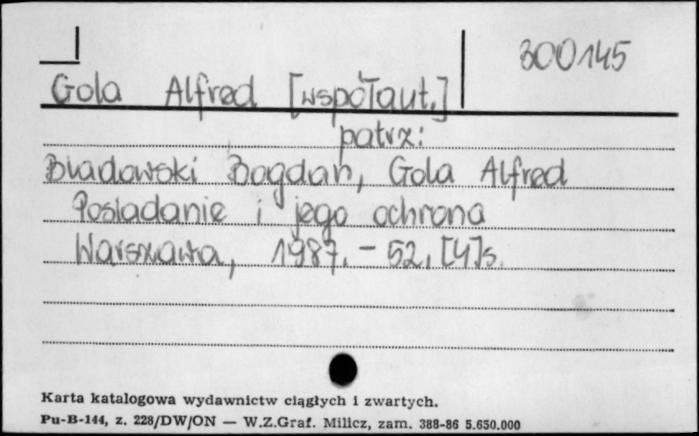 300145
Gola Alfred [współaut.]
patrz:
Bładowski Bogdan, Gola Alfred
Posiadanie i jego ochrona
Warszawa, 1987. - 52, [4]s.
Karta katalogowa wydawnictw ciągłych i zwartych.
Pu-B-144, z. 228/DW/ON — W.Z.Graf. Milicz, zam. 388-86 5.650.000